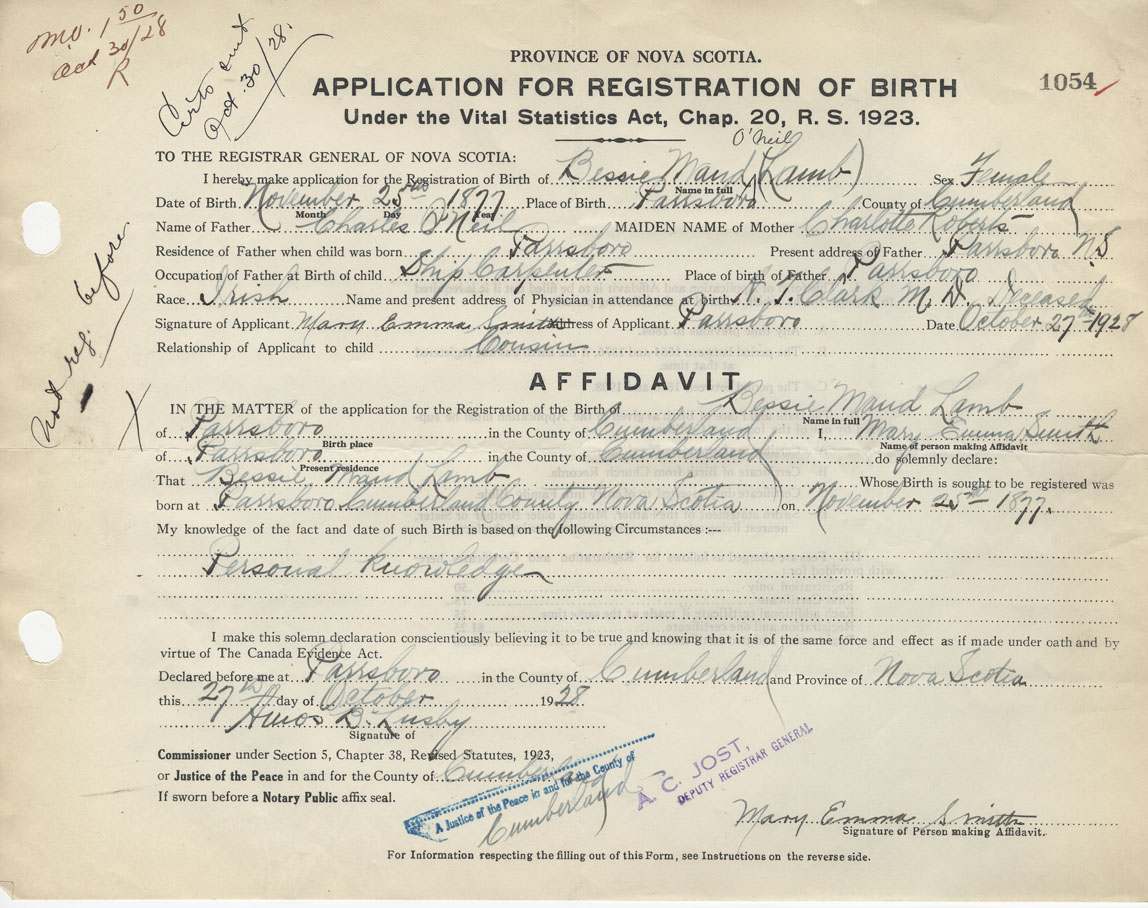 M.O. 1 50
Oct 30/28
R
Certs sent
Oct. 30/28.
PROVINCE OF NOVA SCOTIA.
APPLICATION FOR REGISTRATION OF BIRTH
1054
Under the Vital Statistics Act, Chap. 20, R. S. 1923.
O'Neil
TO THE REGISTRAR GENERAL OF NOVA SCOTIA:
I hereby make application for the Registration of Birth of Bessie Maud (Lamb) Sex Female
Name in full
Date of Birth November 25 1877 Place of Birth Parrsboro County of Cumberland
Month Day Year
Name of Father Charles O'Neil MAIDEN NAME of Mother Charlotte Roberts
Residence of Father when child was born Parrsboro Present address of Father Parrsboro N.S
Occupation of Father at Birth of child Ship Carpenter Place of birth of Father Parrsboro
Race Irish Name and present address of Physician in attendance at birth N. T. Clark M. D. Deceased
Signature of Applicant Mary Emma Smith Address of Applicant Parrsboro Date October 27th 1928
Relationship of Applicant to child Cousin
not reg. before
X
AFFIDAVIT
IN THE MATTER of the application for the Registration of the Birth of Bessie Maud Lamb
Name in full
of Parrsboro in the County of Cumberland I, Mary Emma Smith
Birth place Name of person making Affidavit
of Parrsboro in the County of Cumberland do solemnly declare:
Present residence
That Bessie Maud Lamb Whose Birth is sought to be registered was
born at Parrsboro Cumberland County Nova Scotia on November 25th 1877.
My knowledge of the fact and date of such Birth is based on the following Circumstances :---
Personal Knowledge
I make this solemn declaration conscientiously believing it to be true and knowing that it is of the same force and effect as if made under oath and by
virtue of The Canada Evidence Act.
Declared before me at Parrsboro in the County of Cumberland and Province of Nova Scotia
this 27th day of October 1928
Amos B. Lusby
Signature of
Commissioner under Section 5, Chapter 38, Revised Statutes, 1923,
or Justice of the Peace in and for the County of Cumberland
If sworn before a Notary Public affix seal.
A Justice of the Peace in and for the County of
Cumberland
A. C. JOST,
DEPUTY REGISTRAR GENERAL
Mary Emma Smith
Signature of Person making Affidavit.
For Information respecting the filling out of this Form, see Instructions on the reverse side.